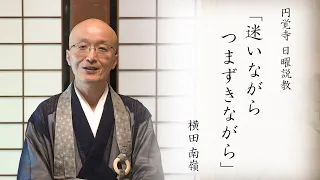 円覚寺 日曜説教
「迷いながら
つまずきながら」
横田 南嶺